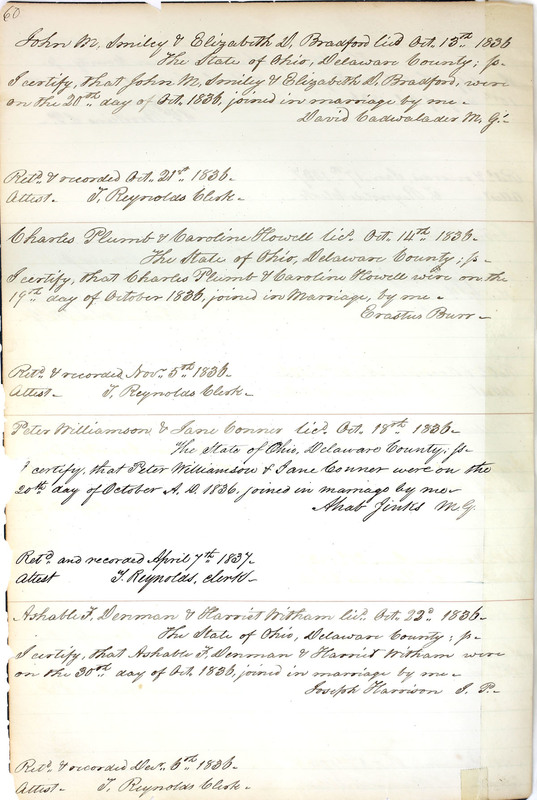 60
John M. Smiley & Elizabeth D. Bradford licd Oct. 13th 1836
The State of Ohio, Delaware County; ss-
I certify, that John M. Smiley & Elizabeth D. Bradford, were
on the 20th day of Oct. 1836, joined in marriage by me-
David Cadwalader M. G.-
Retd & recorded Oct. 21st 1836-
Attest- T. Reynolds Clerk-
Charles Plumb & Caroline Howell licd Oct. 14th 1836-
The State of Ohio, Delaware County; ss-
I certify, that Charles Plumb & Caroline Howell were on the
19th day of October 1836, joined in Marriage, by me-
Erastus Burr-
Retd & recorded Nov. 5th 1836-
Attest- T. Reynolds Clerk-
Peter Williamson & Jane Conner licd Oct. 18th 1836-
The State of Ohio, Delaware County; ss-
I certify, that Peter Williamson & Jane Conner were on the
20th day of October A. D. 1836, joined in marriage by me-
Ahab Jinks M. G.
Retd. and recorded April 7th 1837-
Attest T. Reynolds, clerk-
Ashable F. Denman & Harriet Witham licd Oct. 22d 1836-
The State of Ohio, Delaware County; ss-
I certify, that Ashable F. Denman & Harriet Witham were
on the 30th day of Oct. 1836, joined in marriage by me-
Joseph Harrison J. P.-
Retd & recorded Dec. 6th 1836-
Attest- T. Reynolds Clerk-